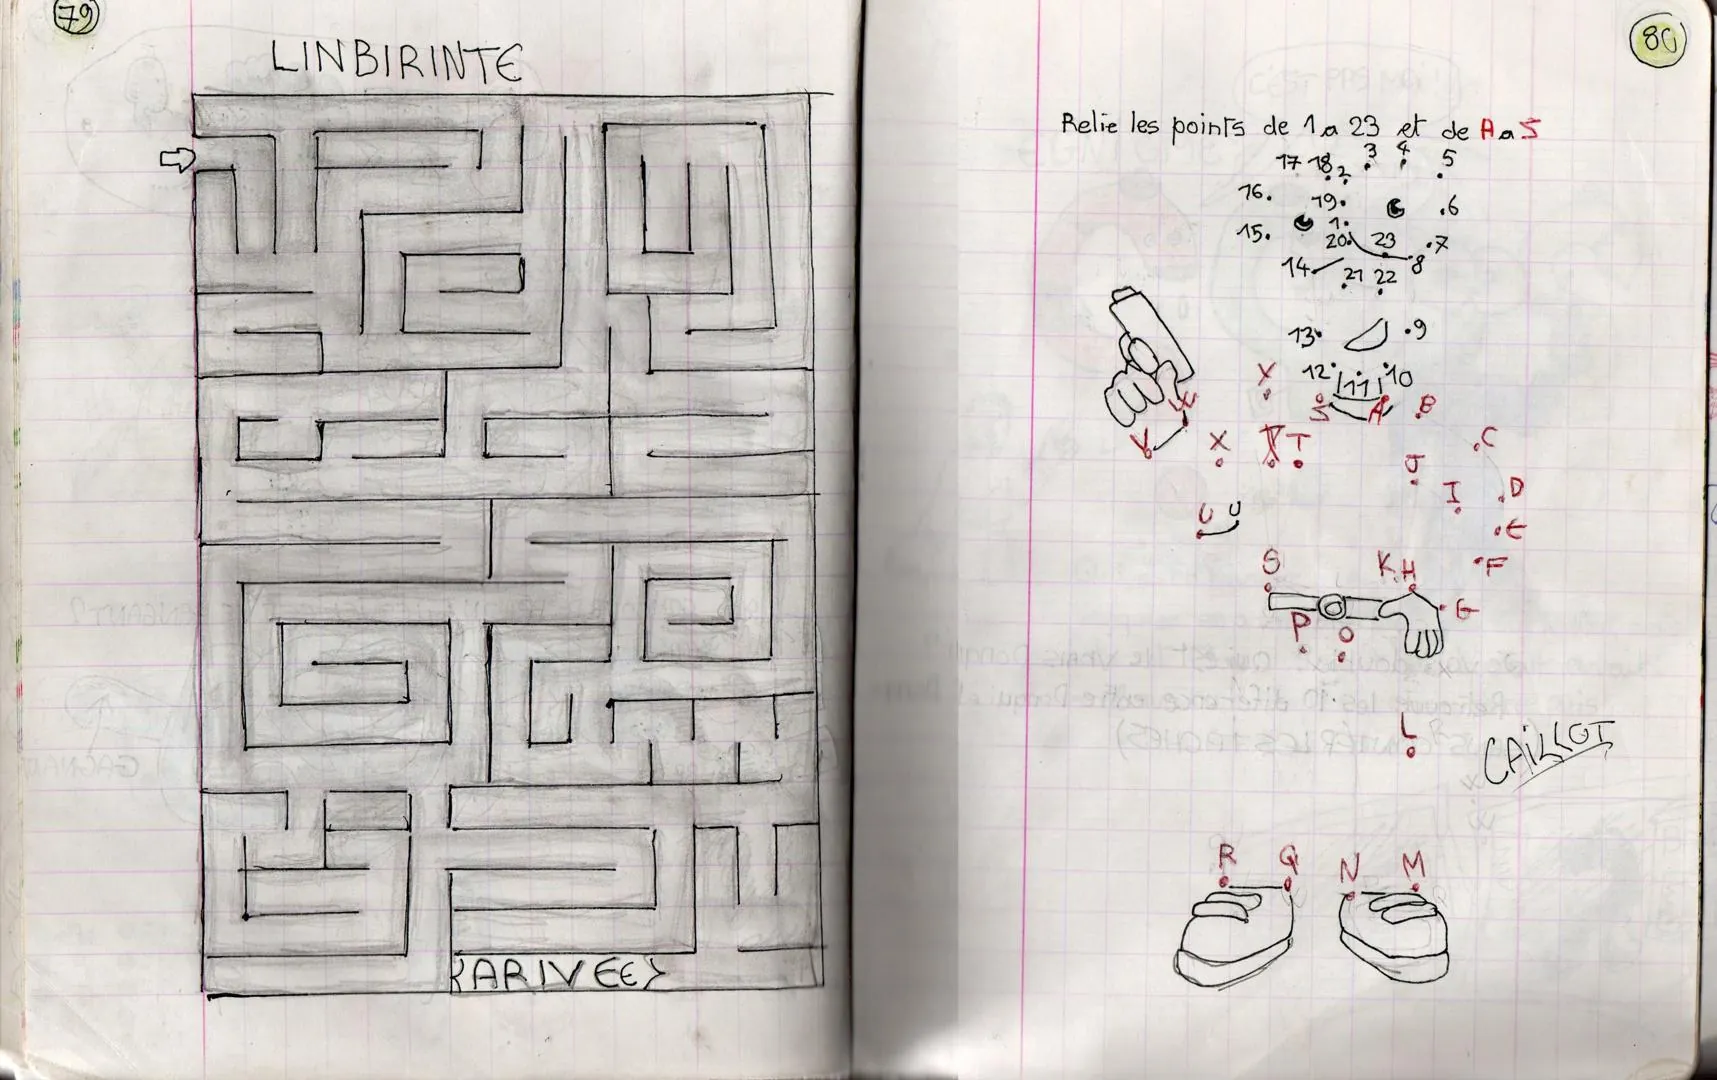 79
LINBIRINTE
{ARIVEE}
80
Relie les points de 1 a 23 et de A a S
17 18 2 3 4 5
16 19 6
15 1 20 23 7
14 21 22 8
13 9
12 11 10
X S A B
W
V X T C
J
I D
U U E
S K H F
G
P O
L
CAILLOT
R Q N M